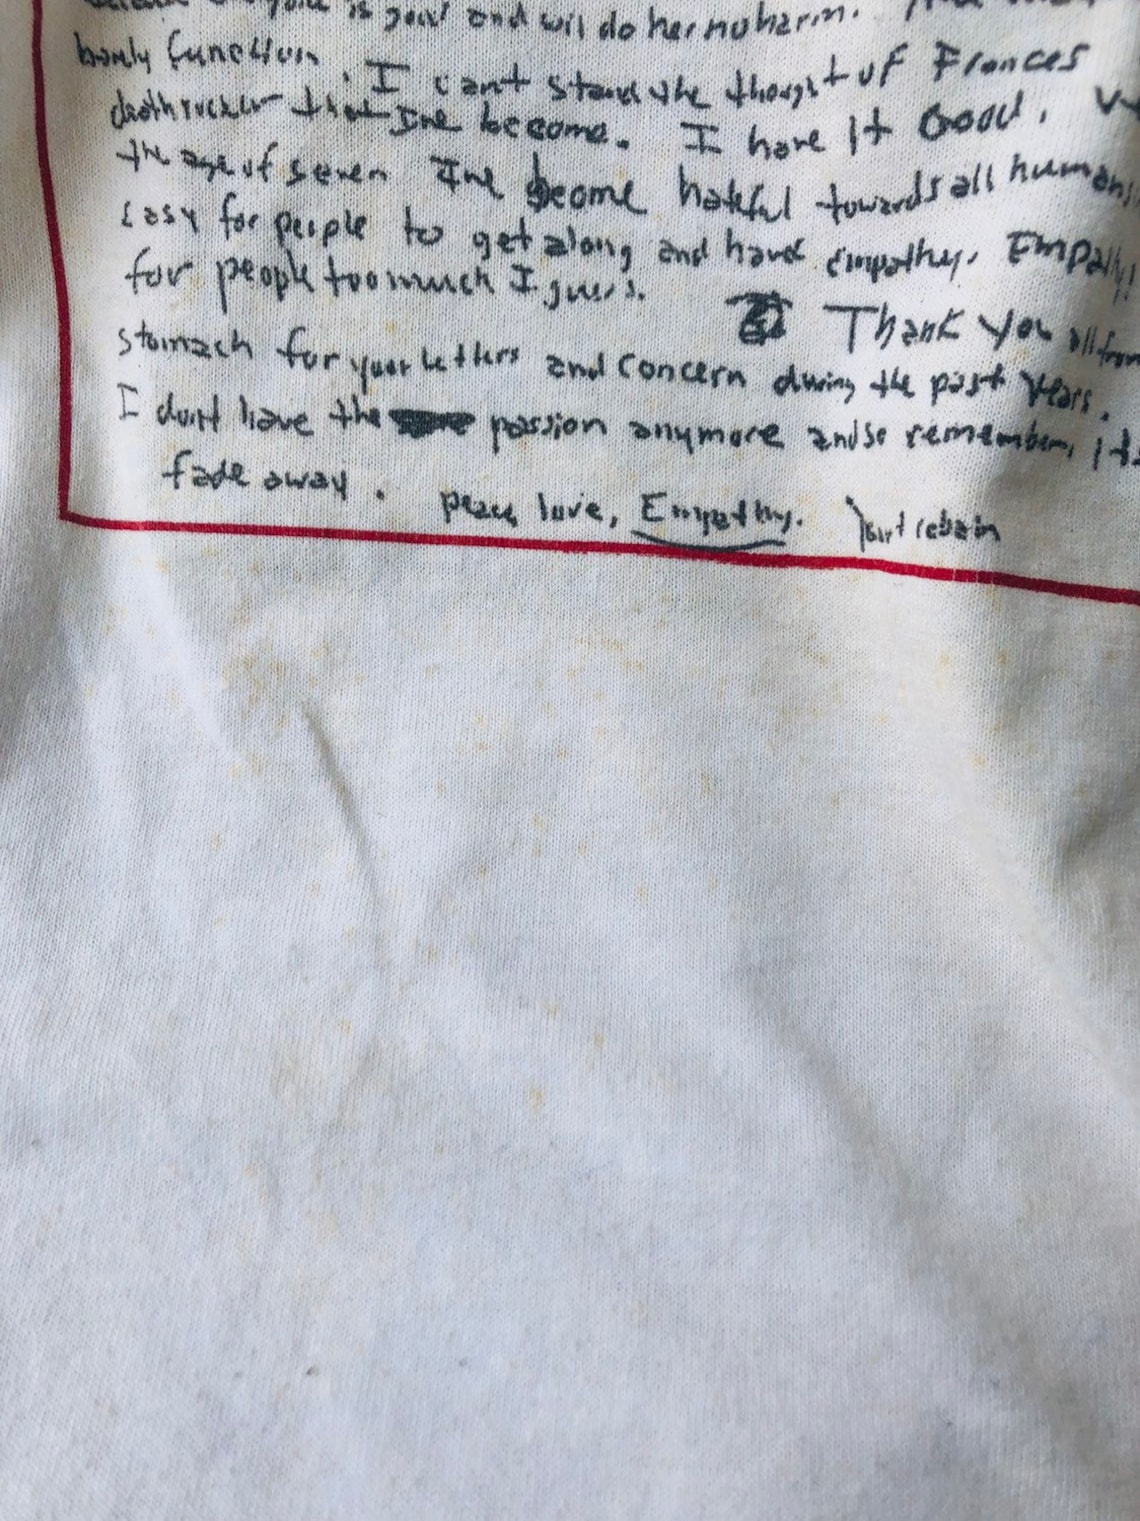 is good and will do her no harm.
barely function. I can't stand the thought of Frances
deathrocker that Ive become. I have it Good.
the age of seven Ive become hateful towards all humans
Easy for people to get along and have empathy. Empathy!
for people too much I guess. Thank you all from
stomach for your letters and concern during the past years.
I dont have the passion anymore and so remember, its
fade away. peace love, Empathy. Kurt Cobain